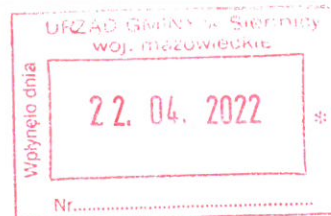 URZĄD GMINY w Siennicy
woj. mazowieckie
Wpłynęło dnia
22. 04. 2022
*
Nr..........................................